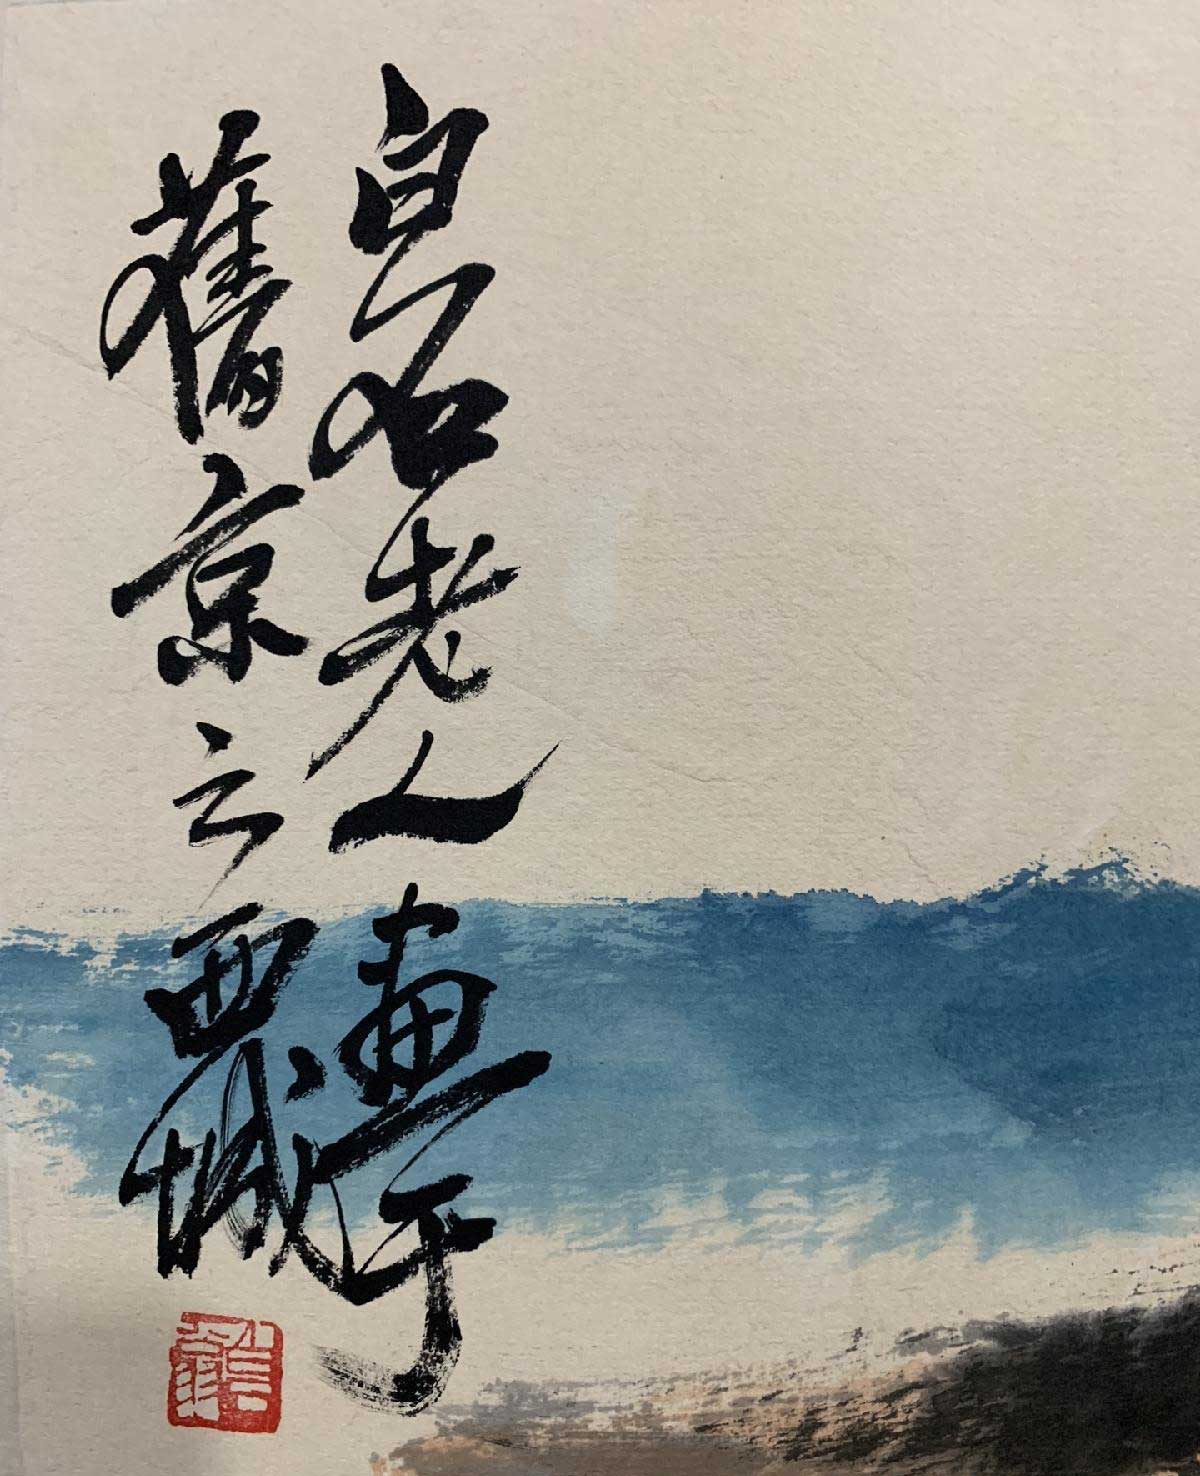 白石老人畫于
舊京之西城